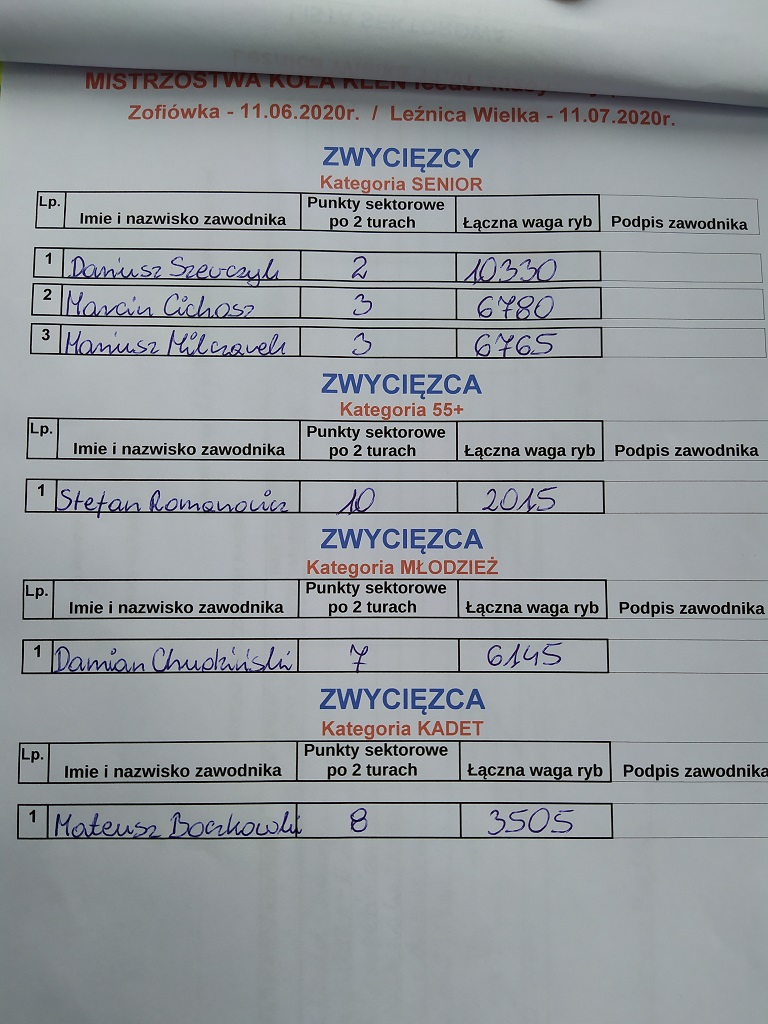 MISTRZOSTWA KOŁA KLEŃ feeder
Zofiówka - 11.06.2020r. / Leźnica Wielka - 11.07.2020r.
ZWYCIĘZCY
Kategoria SENIOR
Lp. Imie i nazwisko zawodnika Punkty sektorowe po 2 turach Łączna waga ryb Podpis zawodnika
1 Dariusz Szewczyk 2 10330
2 Marcin Cichosz 3 6780
3 Mariusz Milczarek 3 6765
ZWYCIĘZCA
Kategoria 55+
Lp. Imie i nazwisko zawodnika Punkty sektorowe po 2 turach Łączna waga ryb Podpis zawodnika
1 Stefan Romanowicz 10 2015
ZWYCIĘZCA
Kategoria MŁODZIEŻ
Lp. Imie i nazwisko zawodnika Punkty sektorowe po 2 turach Łączna waga ryb Podpis zawodnika
1 Damian Chudziński 7 6145
ZWYCIĘZCA
Kategoria KADET
Lp. Imie i nazwisko zawodnika Punkty sektorowe po 2 turach Łączna waga ryb Podpis zawodnika
1 Mateusz Boczkowski 8 3505